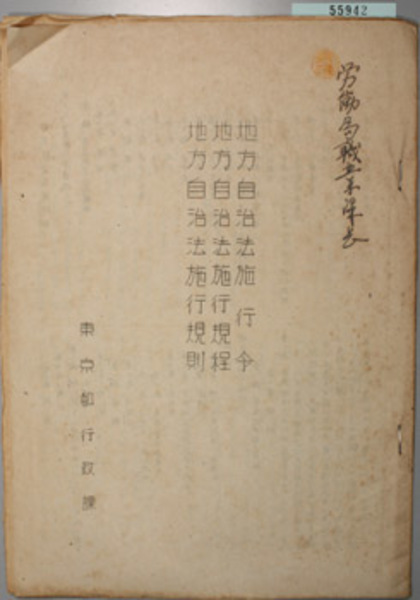 55942
労働局職業課長
地方自治法施行令
地方自治法施行規程
地方自治法施行規則
東京都行政課